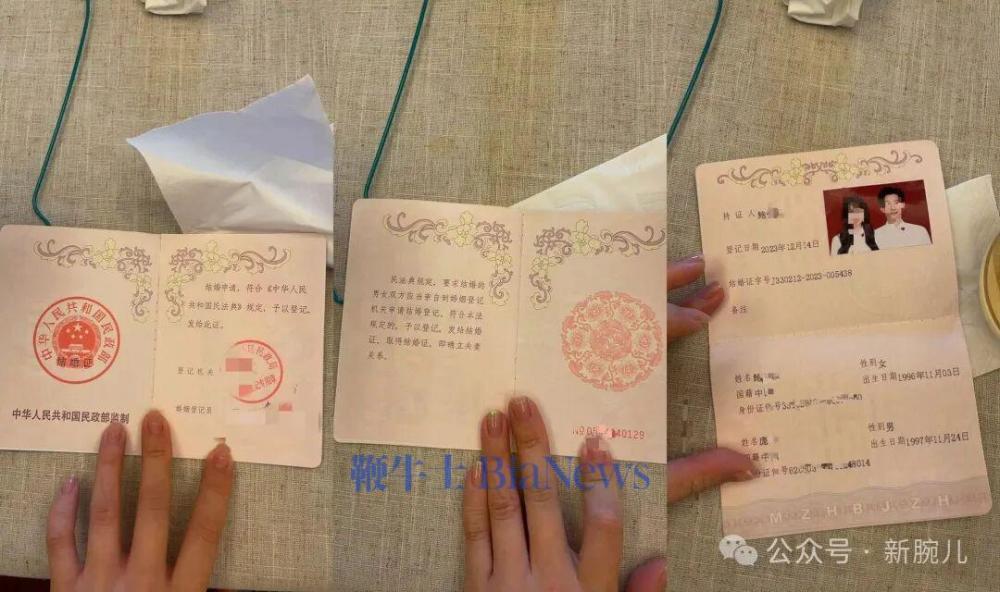 中华人民共和国民政部
结婚证
中华人民共和国民政部监制
结婚申请，符合《中华人民
共和国民法典》规定，予以登记，
发给此证。
登记机关
婚姻登记员
民法典规定，要求结婚的
男女双方应当亲自到婚姻登记
机关申请结婚登记。符合本法
规定的，予以登记，发给结婚
证。取得结婚证，即确立夫妻
关系。
鞭牛士 BiaNews
持证人
登记日期 2023年12月14日
结婚证字号 J330212-2023-005438
备注
姓名
性别 女
国籍 中
出生日期 1996年11月03日
身份证件号
姓名 庞
性别 男
国籍 中
出生日期 1997年11月24日
MZHBJZH
公众号·新腕儿